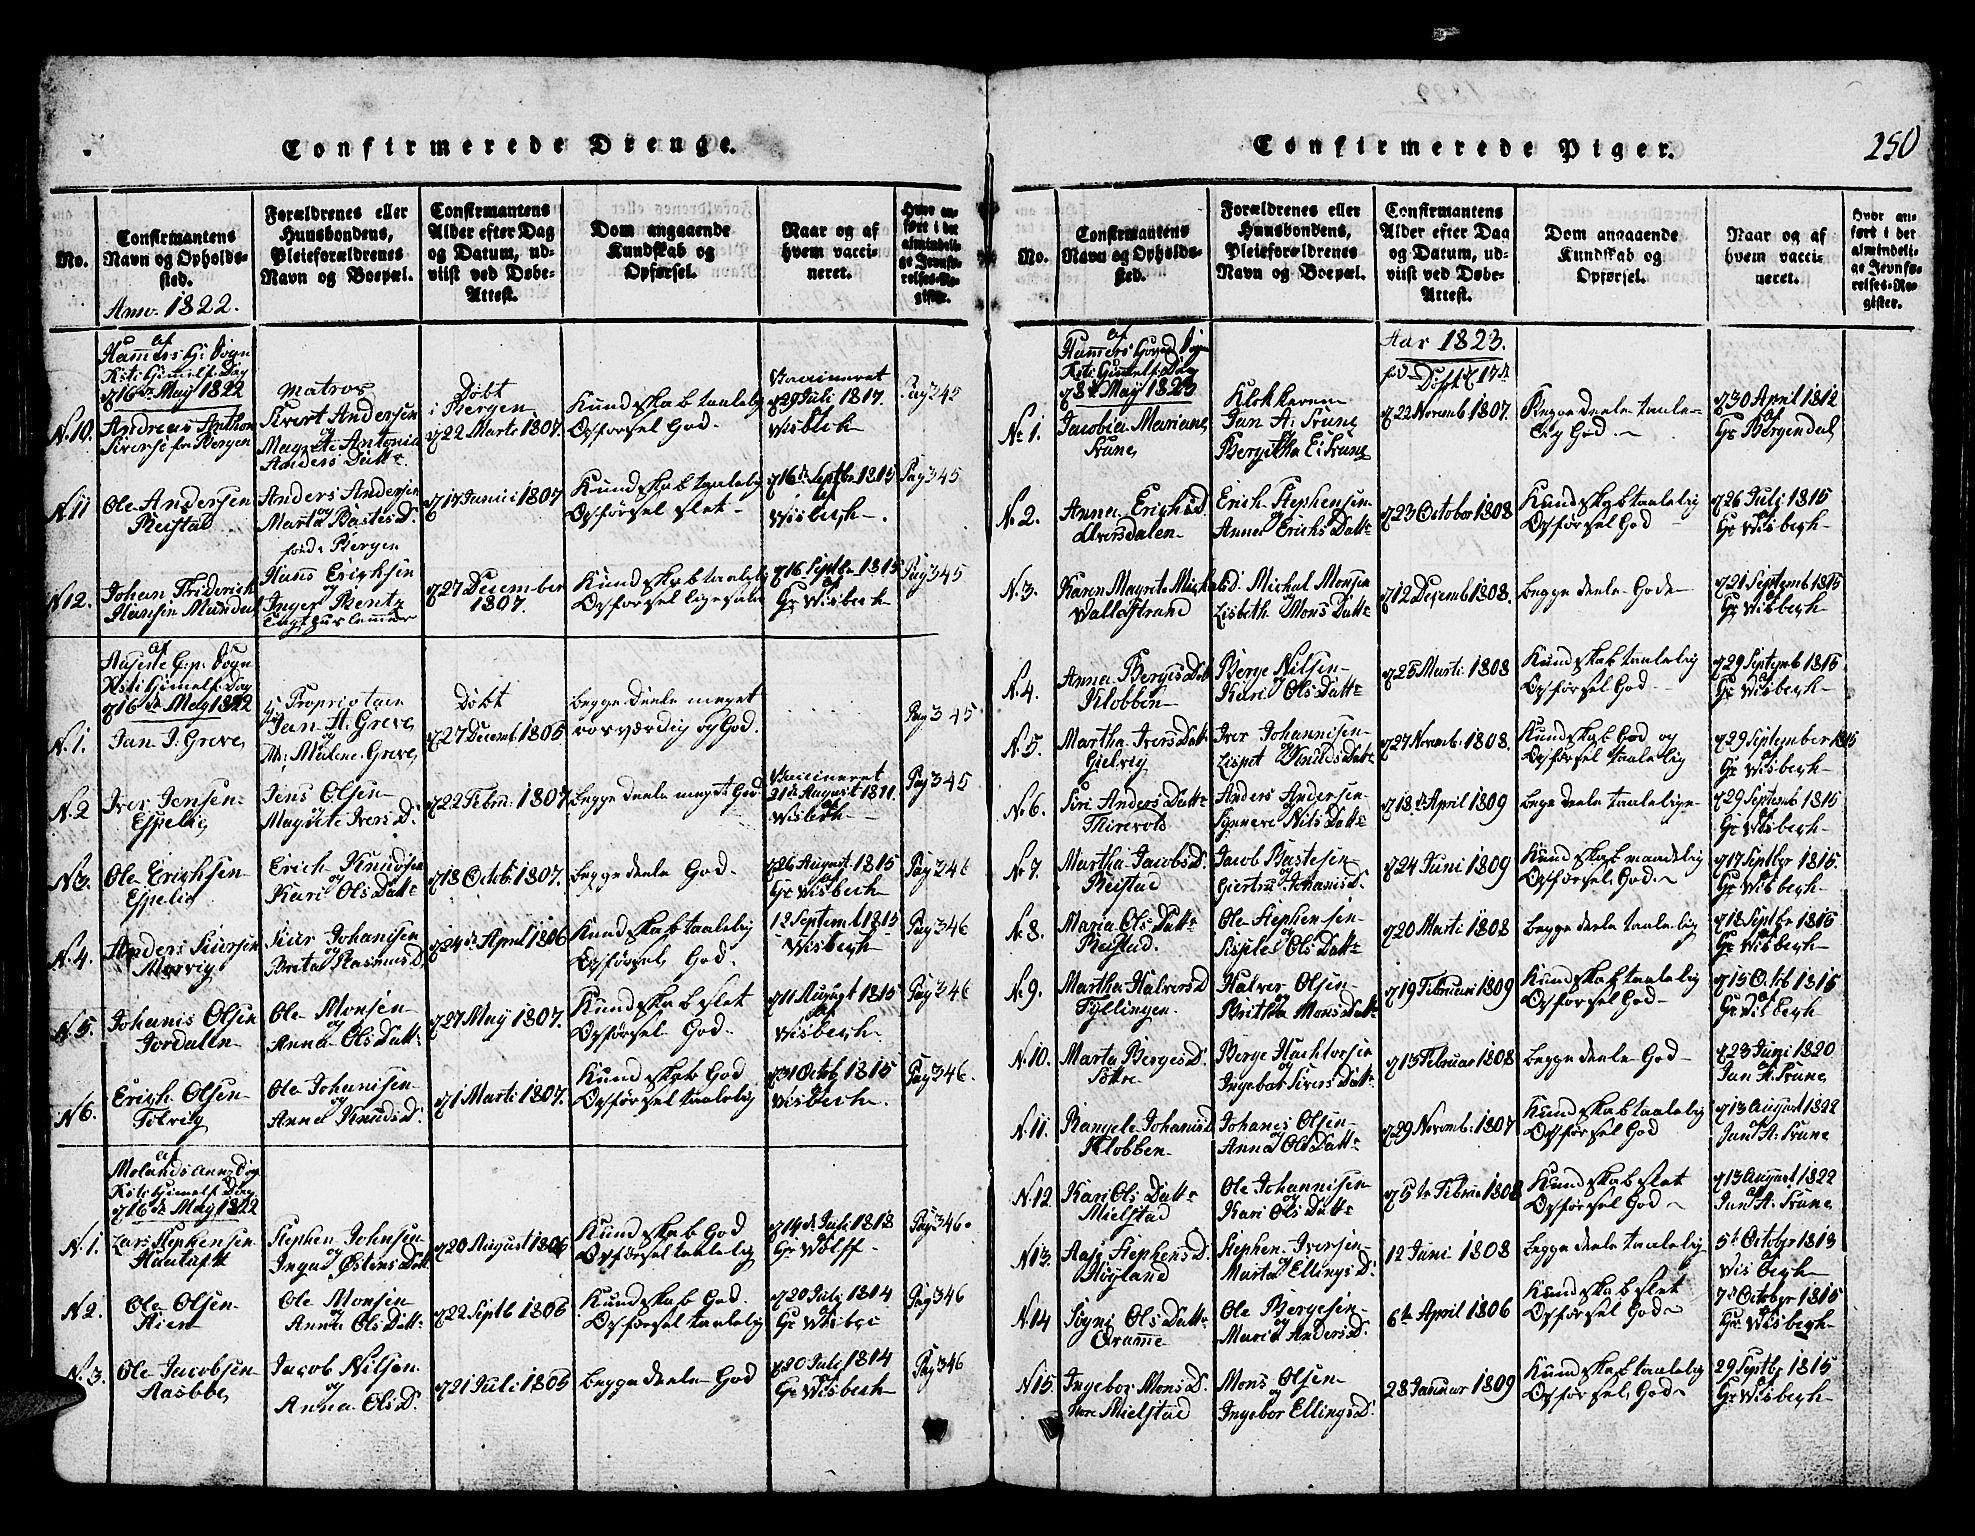 Confirmerede Drenge.
No.
Confirmantens
Navn og Opholds-
sted.
Anno 1822.
Forældrenes eller
Huusbondens,
Pleieforældrenes
Navn og Boepæl.
Confirmantens
Alder efter Dag
og Datum, ud-
viist ved Døbe-
Attest.
Dom angaaende
Kundskab og
Opførsel.
Naar og af
hvem vacci-
neret.
Hvor an-
ført i det
almindeli-
ge Jevnfø-
relses-Re-
gister.
af
Hammers H: Sogn
Kisti Himelf: Dag
16de May 1822
N. 10.
Andreas Anthon
Siversen fra Bergen
Matros
Sivert Andersen
og
Magrete Antonia
Anders Datte
Døbt
i Bergen
22 Marti 1807.
Kundskab taalelig
Opførsel God.
Vaccineret
29 Juli 1817.
af
Wisbech
Pag 345
N. 11
Ole Andersen
Reistad
Anders Andersen
og
Marta Bastes D.
17 Junii 1807
Kundskab taalelig
Opførsel slet
16de Septbr 1815
af
Wisbech.
Pag 345
N 12.
Johan Friderich
Hansen Mundal
fød i Bergen
Hans Erichsen
og
Inger Bentz
Tugthuslemmer
27 December
1807.
Kundskab taalelig
Opførsel ligesaa
16 Septbr 1815
af
Hr Wisbech
Pag 345
af
Kisti Himelf: Dag
16de May 1822
N. 1.
Jan J. Greve
Proprietair
Jan A. Greve
og
M: Malene Greve
Døbt
27 Decemb. 1806
Begge Deele meget
rosværdig og God.
Pag 345
N. 2
Iver Jensen
Espelig
Jens Olsen
og
Magrete Ivers D.
22 Febru: 1807
Begge deele meget God
Vaccineret
21de August 1811.
af
Wisbech
Pag 345
N 3.
Ole Erichsen
Espelig
Erich Knudsen
og
Kari Ols Datte
18 Octob. 1807.
Begge deele God.
26 August 1815
af
Hr Wisbech
Pag 246
N. 4.
Anders Siursen
Morvig
Siur Johanisen
og
Brita Rasmus D.
24de April 1806
Kundskab taalelig
Opførsel God.
12 Septemb 1815
af
Wisbech
Pag 346
N. 5.
Johanis Olsen
Jordalen
Ole Monsen
og
Anna Ols Datte
27 May 1807.
Kundskab slet
Opførsel God.
11 August 1815
af
Wisbech.
Pag 346
N 6.
Erich Olsen
Totvig
Ole Johanisen
og
Anna Knuds D.
1 Marti 1807.
Kundskab God
Opførsel taalelig
31 Octob 1815
af
Wisbech.
Pag 346.
af
Molands Annex Sogn
Kisti Himelf: Dag
16de May 1822
N. 1.
Lars Stephensen
Haatuft
Stephen Johnsen
og
Ingad Østens Datt
20 August 1806
Kundskab God
Opførsel taalelig
14de Juli 1818
Hr Wolff
Pag 346.
N 2.
Ole Olsen
Aien
Ole Monsen
og
Anna Ols Datte
22 Septb 1806
Kundskab God.
Opførsel taalelig
20 July 1814
af
Hr Wisbec
Pag 346
N. 3.
Ole Jacobsen
Aasbbe
Jacob Nilsen
og
Anna Ols D.
21 Juli 1806
Begge deele God
20 July 1814
af
Hr Wisbech
Pag 346
Confirmerede Piger.
250
No.
Confirmantens
Navn og Opholds-
sted.
Forældrenes eller
Huusbondens,
Pleieforældrenes
Navn og Boepæl.
Confirmantens
Alder efter Dag
og Datum, ud-
viist ved Døbe-
Attest.
Dom angaaende
Kundskab og
Opførsel.
Naar og af
hvem vacci-
neret.
Hvor an-
ført i det
almindeli-
ge Jevnfø-
relses-Re-
gister.
Aar 1823.
af
Hammers Hoved Sogn
Kisti Himelf: Dag
8de May 1823
N: 1.
Jacobia Mariane
Irune
Klokkeren
Jan A: Irune
og
Bergitha E: Irune
22 Novemb. 1807.
Begge deele taale-
lig God.
30 April 1812
af
Hr Bergendal
N. 2.
Anna Erichs D
Elversdalen
Erich Stephensen
og
Anna Erichs Datte
23 October 1808
Kundskab taalelig
Opførsel God
26 Juli 1815
af
Hr Wisbech
N. 3.
Karen Magrete Michals D.
Wallestrand
Michal Monsen
og
Lisbeth Mons Datte
12 Decemb 1808.
Begge deele Gode
21 Septemb 1815
af
Hr Wisbech
N. 4.
Anna Berges Datt
Klobben
Berge Nilsen
og
Kari Ols Datte
25 Marti 1808
Kundskab taalelig
Opførsel God
29 Septemb 1815
af
Hr Wisbech
N. 5.
Martha Ivers Datt
Gielvig
Iver Johannisen
og
Lispet Knuds Datte
27 Novemb: 1808.
Kundskab God og
Opførsel taalelig
29 September 1815
af
Hr Wisbech
N. 6.
Siri Anders Datte
Thirevold
Anders Andersen
og
Synneve Nils Datte
18de April 1809
Begge deele taalelige
29 Septemb 1815
af
Hr Wisbech
N 7.
Martha Jacobs D.
Reistad
Jacob Bastesen
og
Giertru Johanis D.
24 Juni 1809
Kundskab maadelig
Opførsel God
17 Septbr 1815.
af
Hr Wisbech
N. 8.
Maria Ols Datte
Reistad.
Ole Stephensen
og
Sispele Ols Datte
20 Marti 1808
Begge deele taalelig
18 Septbr 1815
af
Hr Wisbech
N. 9.
Martha Halvers D
Tyllingen
Halver Olsen
og
Britha Mons Datte
19 Februari 1809
Kundskab taalelig
Opførsel God
15 Octb 1815
af
Hr Wisbech
N. 10.
Marta Berges D.
Sottre
Berge Hachtorsen
og
Ingebor Sivers Datte
13 Februar 1808
Begge deele God
23 Juni 1820
af
Jan A. Irune
N. 11.
Rangele Johanis D.
Klobben
Johanes Olsen
og
Anna Ols Datte
29 Novemb: 1807
Kundskab taalelig
Opførsel God
13 August 1822
af
Jan A: Irune
N. 12
Kari Ols Datte
Mielstad
Ole Johannisen
og
Kari Ols Datte
5te Februa 1808
Kundskab slet
Opførsel God
13 August 1822
af
Jan A. Irune
N 13.
Aase Stephens D.
Høyland
Stephen Iversen
og
Marta Ellings D.
12 Juni 1808
Begge deele taalelig
5t October 1813
af
Wisbech
N. 14
Sogni Ols Datte
Qvamme
Ole Bergesen
og
Maria Anders D.
6te April 1806
Kundskab slet
Opførsel God
7de October 1815
af
Hr Wisbech
N 15.
Ingebor Mons D.
Store Mielstad
Mons Olsen
og
Ingebor Ellings D.
28 Januar 1809
Kundskab taalelig
Opførsel God
29 Septbr 1815
af
Hr Wisbech